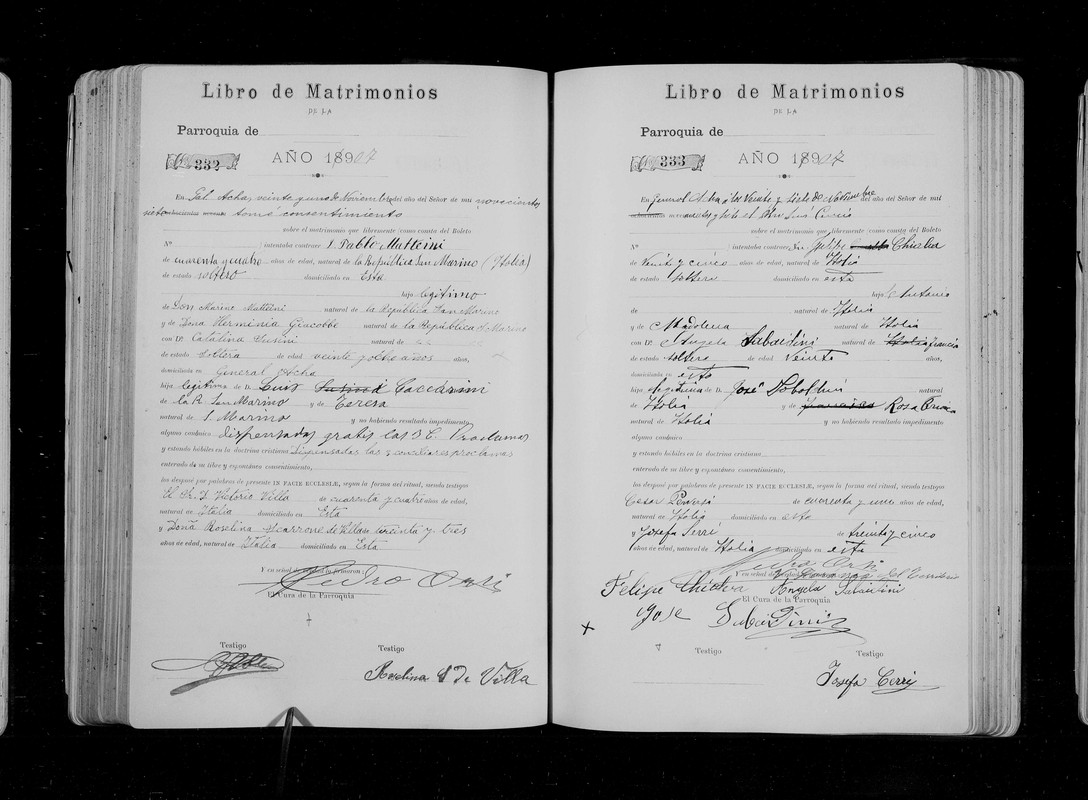 Libro de Matrimonios
DE LA
Parroquia de
332 AÑO 1907
En Gal. Acha, veinte y uno de Noviembre del año del Señor de mil novecientos
siete tomé consentimiento
sobre el matrimonio que libremente /como consta del Boleto
Nº / intentaba contraer D. Pablo Matteini
de cuarenta y cuatro años de edad, natural de la República San Marino (Italia)
de estado soltero domiciliado en Esta
hijo legítimo
de Don Marino Matteini natural de la República San Marino
y de Doña Herminia Giacobbe natural de la República S. Marino
con Dª. Catalina Susini natural de
de estado Soltera de edad veinte y ocho años años,
domiciliada en General Acha
hija legítima de D. Luis Cacciarini
de la R. San Marino y de Teresa
natural de S. Marino y no habiendo resultado impedimento
alguno canónico dispensadas gratis las S. C. Proclamas
y estando hábiles en la doctrina cristiana Dispensadas las 3 conciliares proclamas
enterado de su libre y espontáneo consentimiento,
los desposé por palabras de presente IN FACIE ECCLESLÆ, según la forma del ritual, siendo testigos
El Sr. D. Victorio Villa de cuarenta y cuatro años de edad,
natural de Italia domiciliado en Esta
y Doña Roselina de Villa de treinta y tres
años de edad, natural de Italia domiciliado en Esta
Y en señal de verdad lo firmaron:
Pedro Orsi
El Cura de la Parroquia
Testigo
Roselina S de Villa
Libro de Matrimonios
DE LA
Parroquia de
333 AÑO 1907
En General Acha á los Veinte y siete de Noviembre del año del Señor de mil
novecientos y siete
sobre el matrimonio que libremente /como consta del Boleto
Nº / intentaba contraer Felipe Chiolva
de Veinte y cinco años de edad, natural de Italia
de estado soltero domiciliado en esta
hijo de Antonio
de natural de Italia
y de Madalena natural de Italia
con Dª. Angela Sabaidini natural de Italia Francia
de estado soltera de edad Veinte años,
domiciliada en esta
hija legítima de D. José natural
de Italia y de Rosa
natural de Italia y no habiendo resultado impedimento
alguno canónico
y estando hábiles en la doctrina cristiana
enterado de su libre y espontáneo consentimiento,
los desposé por palabras de presente IN FACIE ECCLESLÆ, según la forma del ritual, siendo testigos
Cesar de cuarenta y uno años de edad,
natural de Italia domiciliado en esta
y Josefa Serri de treinta y cinco
años de edad, natural de Italia domiciliado en esta
Pedro Orsi
Y en señal de
Felipe Chiolva Angela Sabaidini
El Cura de la Parroquia
x Jose
Testigo Testigo
Josefa Cerri